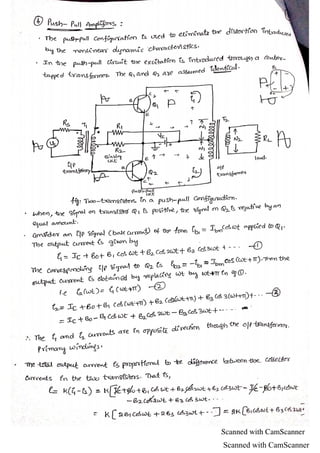 ⑥ Push-Pull Amplifiers :
• The push-pull configuration is used to eliminate the distortion introduced
by the nonlinear dynamic characteristics.
• In the push-pull circuit the excitation is introduced through a center-
tapped transformer. The Q1 and Q2 are assumed identical.
Q1
Rs
T1
R1
R2
Vcc
T2
RL
i/p
transformer
Biasing
Q2
push-pull
o/p
transformer
load
fig: Two-transistors in a push-pull configuration.
• When, the signal on transistor Q1 is positive, the signal on Q2 is negative by an
equal amount.
• Consider an i/p signal (base current) of the form ib1 = Ibm cos ωt applied to Q1.
The output current is given by
i1 = Ic + B0 + B1 cos ωt + B2 cos 2ωt + B3 cos 3ωt + ---- ①
The corresponding i/p signal to Q2 is ib2 = -ib1 = Ibm cos (ωt + π). Then the
output current is obtained by replacing ωt by ωt+π in eq ①.
i.e i2(ωt) = i1(ωt+π) — ②
= Ic + B0 + B1 cos (ωt+π) + B2 cos 2(ωt+π) + B3 cos 3(ωt+π) + ---
= Ic + B0 - B1 cos ωt + B2 cos 2ωt - B3 cos 3ωt - - - - ③
∴ The i1 and i2 currents are in opposite direction through the o/p transformer
primary windings.
• The total output current is proportional to the difference between the collector
currents in the two transistors. That is,
i = K(i1-i2) = K[Ic + B0 + B1 cos ωt + B2 cos 2ωt + B3 cos 3ωt - Ic - B0 + B1 cos ωt
- B2 cos 2ωt + B3 cos 3ωt ---
= K [2B1 cos ωt + 2B3 cos 3ωt + - -] = 2K [B1 cos ωt + B3 cos 3ωt
Scanned with CamScanner
Scanned with CamScanner